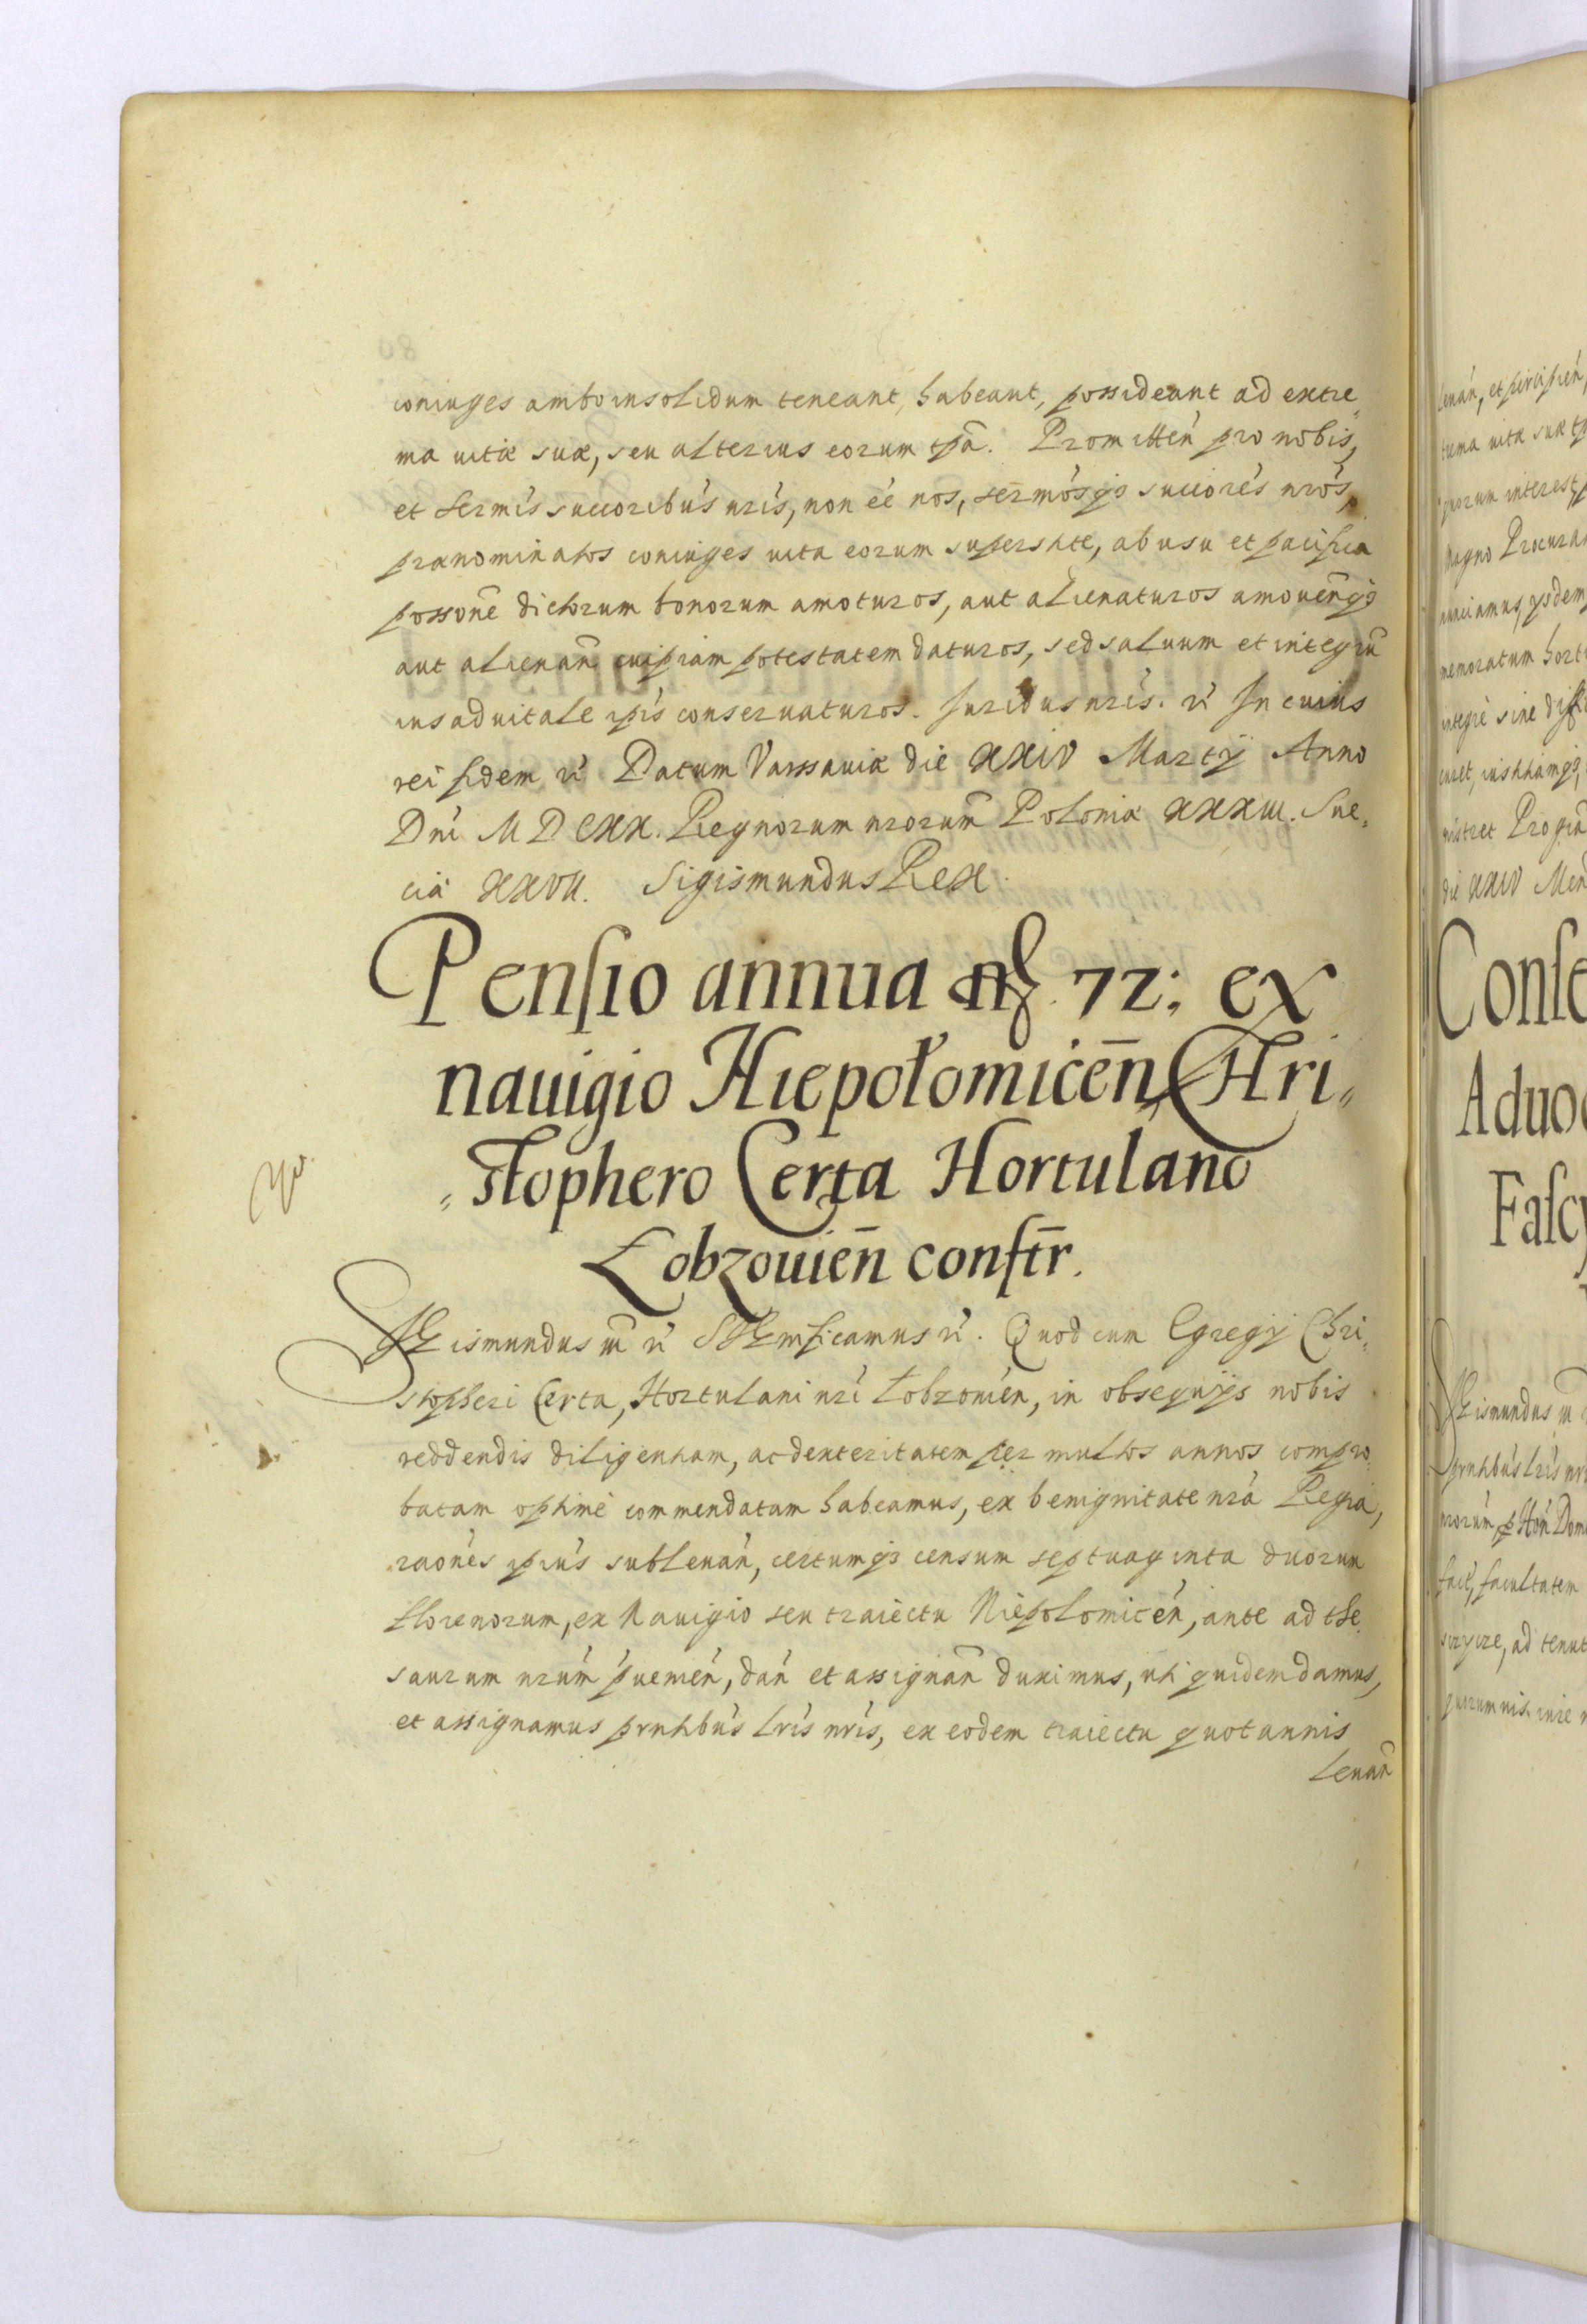 coniuges ambo insolidum teneant, habeant, possideant ad extre„
ma vitæ suæ, seu alterius eorum tpã. Promitteń pro nobis,
et sermís succoribús nrís, non eé nos, sermósqꝫ succorés nrós,
prænominatos coniuges vita eorum superstite, ab usu et pacifica
possoñe dictorum bonorum amoturos, aut alienaturos amoueñqꝫ
aut alienañ cuipiam potestatem daturos, sed saluum et integrũ
ius aduitale ipís conseruaturos. Juribus nrís. ꝛć In cuius
rei fidem ꝛć Datum Varssauiæ die XXIV Martij Anno
Dńi MDCXX. Regnorum nrorum̃ Poloniæ XXXIII. Sue„
ciæ XXVII. Sigismundus Rex.
Pensio annua fl. 72: ex
nauigio Niepołomiceñ Chri„
„stophero Certa Hortulano
Łobzouień confr̄.
SIGismundus III ꝛć SIGnificamus ꝛć. Quod cum Egregij Chri„
stopheri Certa, Hortulani nrí Łobzouień, in obsequijs nobis
reddendis diligentiam, ac dexteritatem per multos annos compro„
batam optimè commendatam habeamus, ex benignitate nrá Regia,
raonés ipiús subleuań, certumqꝫ censum septuaginta duorum
florenorum, ex Nauigio seu traiectu Niepolomiceń, ante ad the„
saurum nrúm ꝓuenień, dań et assignañ duximus, uti quidem damus,
et assignamus prntibús lrís nrís, ex eodem traiectu quotannis
leuañ
leuań, et percipień,
trema vitæ suæ
quorum interest,
Magno Procura
memoratum horti
die XXIV Men
Conse
Aduoc
Fascy
SIGismundus III
prntibús lrís nrí
facultatem